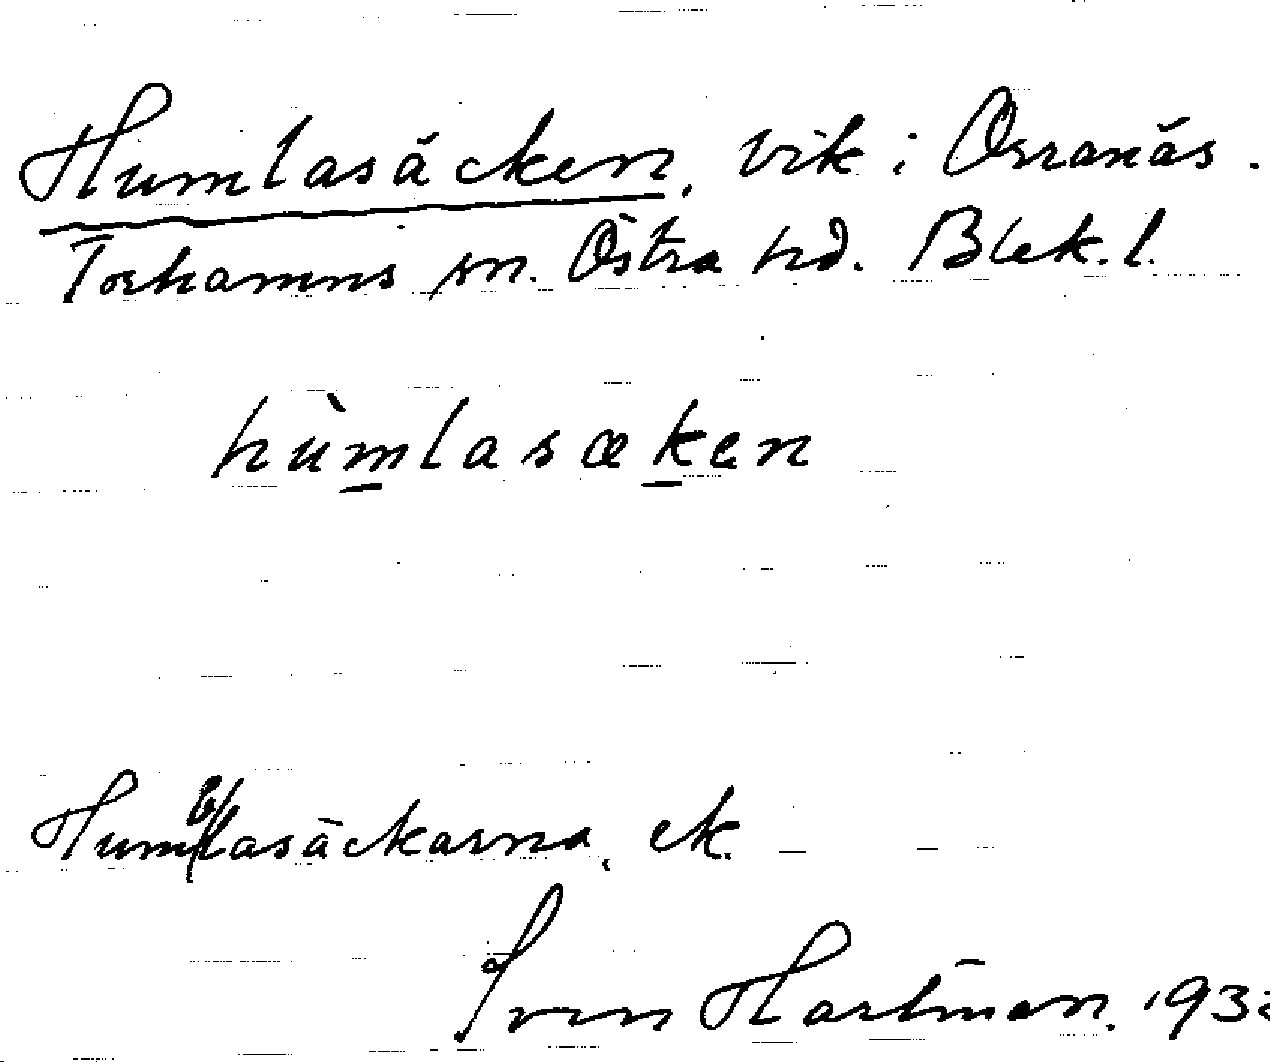 Humlasäcken, vik i Orranäs.
Torhamns sn. Östra hd. Blek. l.
hùmlasæken
Humblasäckarna, ek.
Sven Hartman. 193